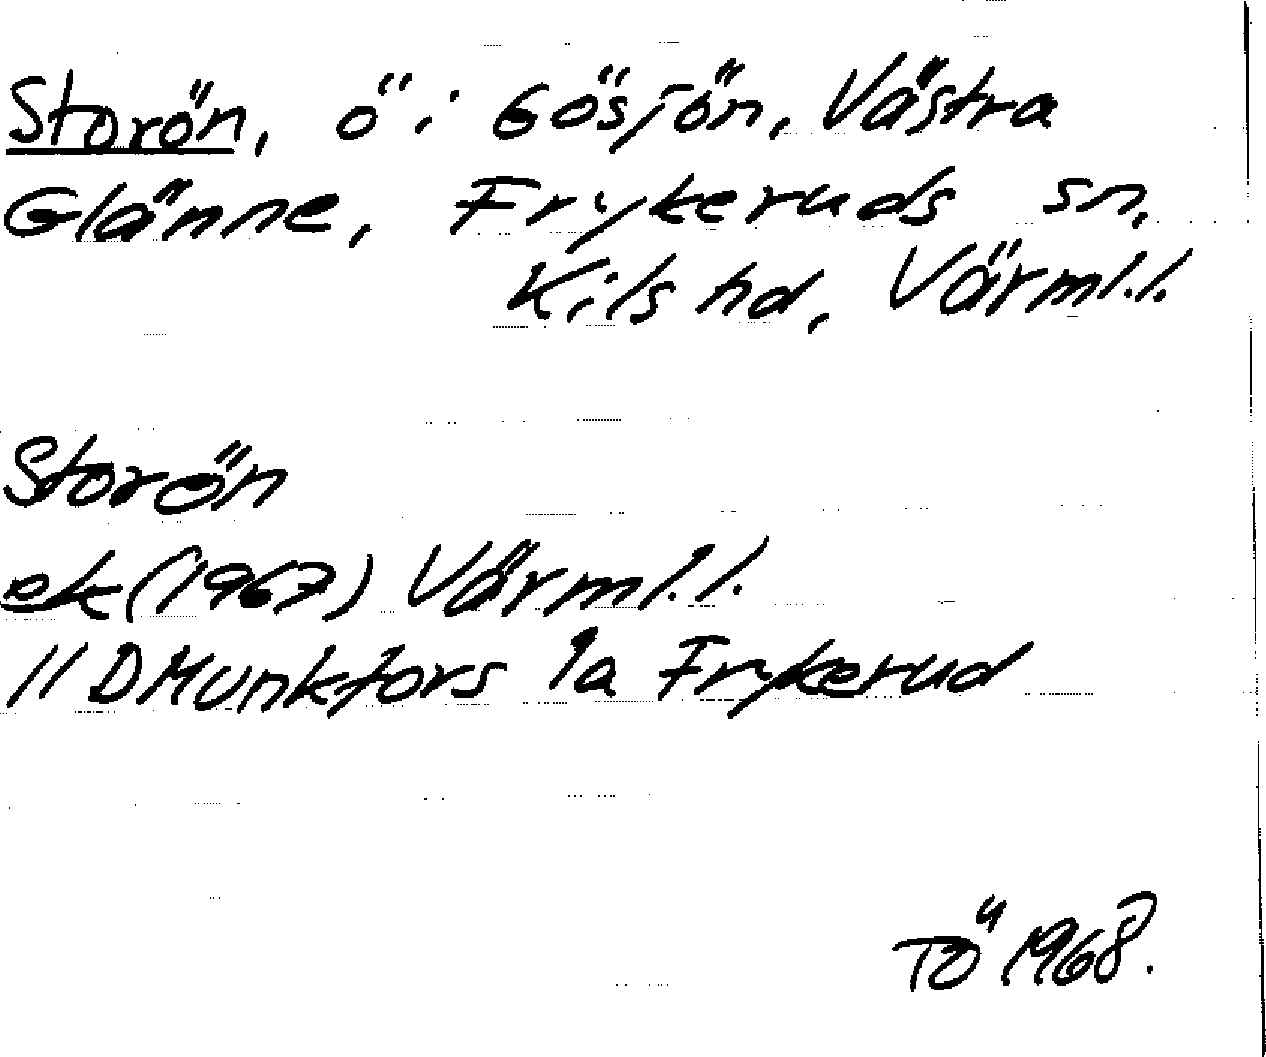 Storön, ö i Gösjön, Västra
Glänne, Frykeruds sn,
Kils hd, Värml.l.
Storön
ek (1967) Värml.l.
11D Munkfors 1a Frykerud
TÖ 1968.